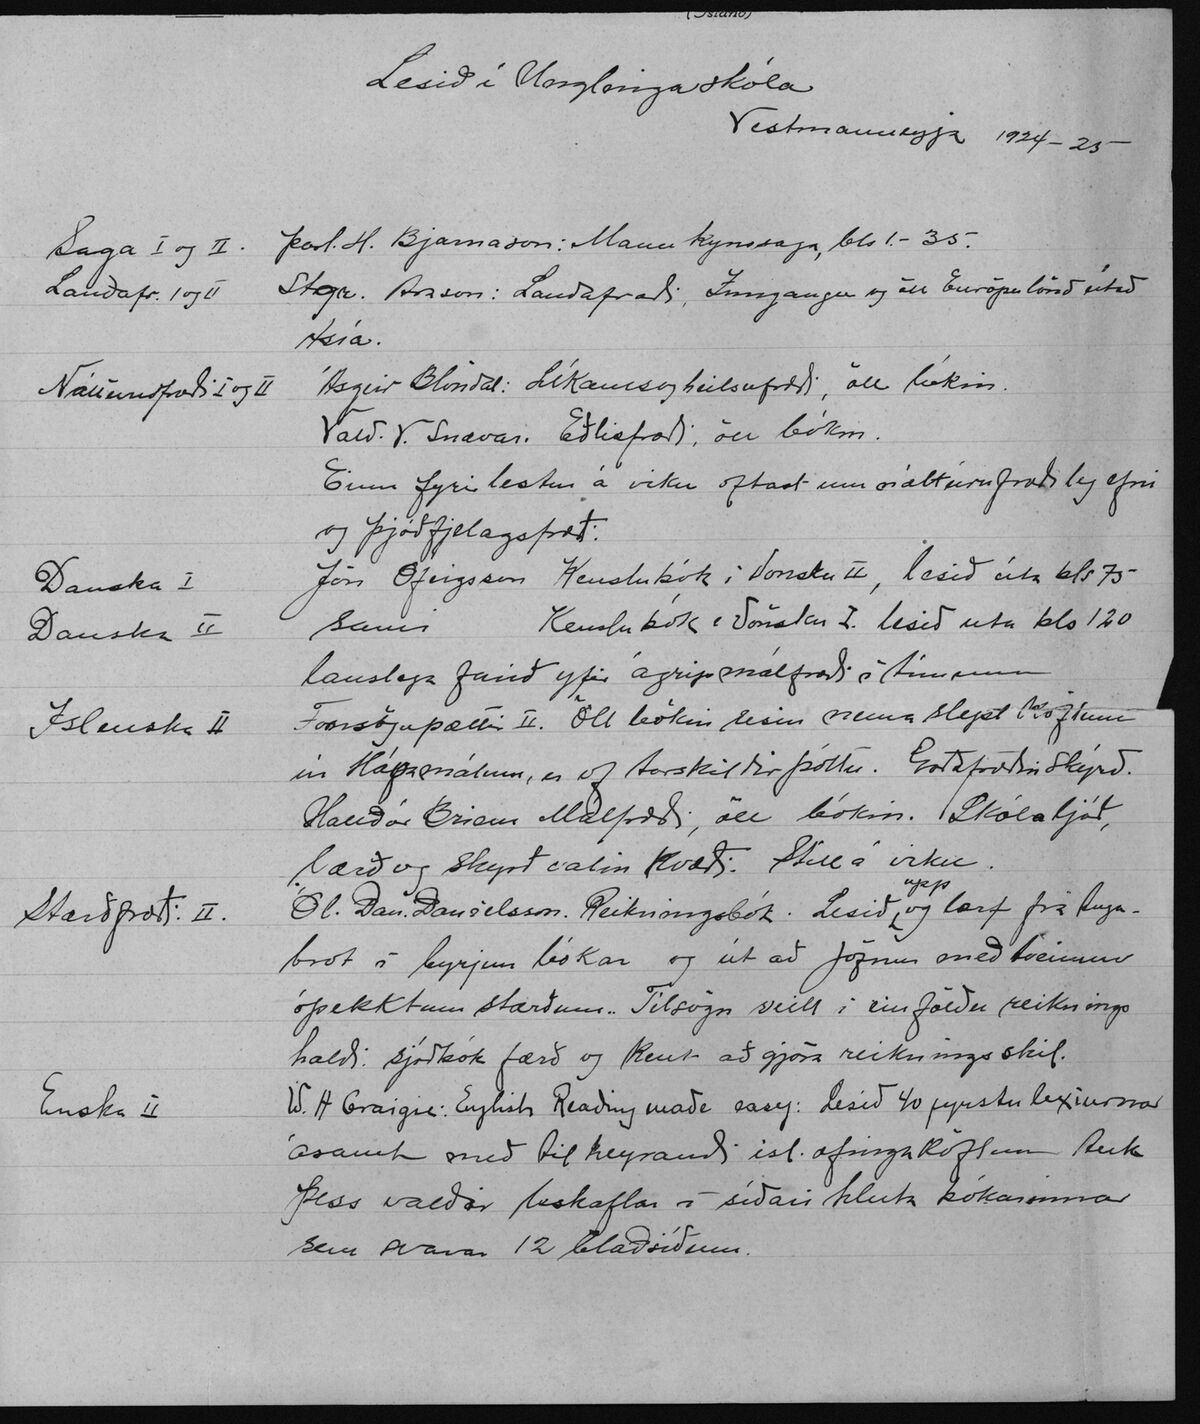 (Ísland)
Lesið í Unglingaskóla
Vestmannaeyja 1924-25
Saga I og II. Þorl. H. Bjarnason: Mannkynssaga, bls 1.-35.
Landafr. I og II Stgr. Arason: Landafræði, Inngangur og öll Európulönd út að
Asía.
Náttúrufræði I og II Ásgeir Blöndal: Líkams og heilsufræði, öll bókin.
Vald. V. Snævar. Eðlisfræði, öll bókin.
Einn fyrirlestur á viku oftast um náttúrufræðileg efni
og þjóðfjelagsfræði.
Danska I Jón Ófeigsson Kenslubók í dönsku II, lesið út á bls 75
Danska II sami Kenslubók í dönsku I. lesið út á bls 120
lauslega farið yfir ágrip málfræði í tímunum
Íslenska II Fornsöguþættir II. Öll bókin lesin nema slept köflum
úr Hávamálum, er of torskildir þóttu. Goðafræðin skýrð.
Halldór Briem Málfræði, öll bókin. Skólaljóð,
lærð og skýrð valin kvæði. Stíll á viku.
Stærðfræði. II. Ól. Dan. Daníelsson. Reikningsbók. Lesið upp og lært frá tuga-
brot í byrjun bókar og út að jöfnur með tveimur
óþekktum stærðum.. Tilsögn veitt í einföldu reiknings
haldi. sjóðbók færð og kent að gjöra reikningsskil.
Enska II W. A Craigie: English Reading made easy: Lesið 40 fyrstu lexíurnar
ásamt með tilheyrandi ísl. æfingaköflum Auk
þess valdir leskaflar í síðari hluta bókarinnar
sem svarar 12 blaðsíðum.